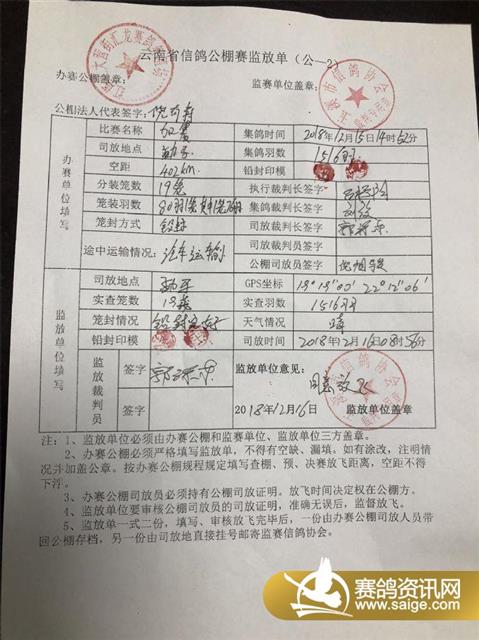 云南省信鸽公棚赛监放单（公—2）
办赛公棚盖章： 监赛单位盖章：
玉溪市信鸽协会
公棚法人代表签字：
办赛单位填写
比赛名称 决赛 集鸽时间 2018年12月15日14时52分
司放地点 集鸽羽数 1516羽
空距 402km 铅封印模
分装笼数 19笼 执行裁判长签字
笼装羽数 集鸽裁判长签字
笼封方式 铅封 司放裁判员签字
途中运输情况： 汽车运输 司放裁判员签字
公棚司放员签字
监放单位填写
司放地点 GPS坐标 22°12′06′
实查笼数 19笼 实查羽数 1516羽
笼封情况 铅封完好 天气情况 晴
铅封印模 司放时间 2018年12月16日08时56分
监放裁判员
签字 监放单位意见：
签字 同意放飞
2018年12月16日 监放单位盖章
注：1、监放单位必须由办赛公棚和监赛单位、监放单位三方盖章。
2、办赛公棚必须严格填写监放单，不得有空缺、漏填。如有涂改，注明情
况并加盖公章。按办赛公棚规程规定填写查棚、预、决赛放飞距离，空距不得
下浮。
3、办赛公棚司放员必须持有公棚司放证明。放飞时间决定权在公棚方。
4、监放单位要审核公棚司放员的司放证明，准确无误后，监督放飞。
5、监放单一式二份，填写、审核放飞完毕后，一份由办赛公棚司放人员带
回公棚存档，另一份由司放地直接挂号邮寄监赛信鸽协会。
赛鸽资讯网
www.saige.com